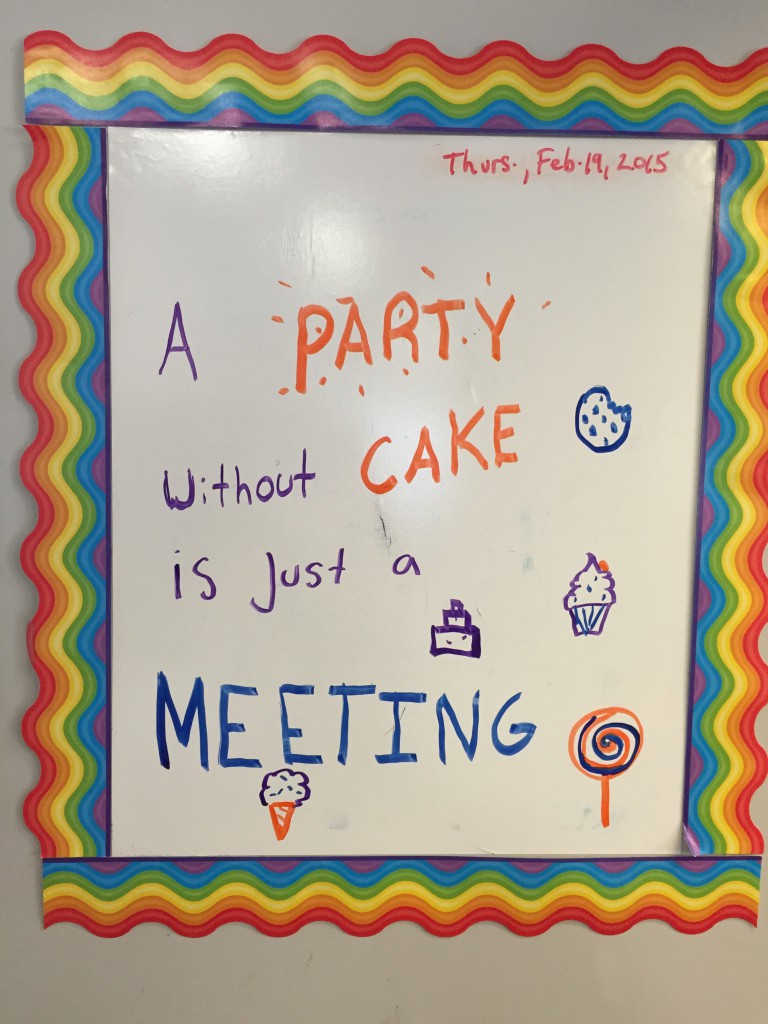 Thurs., Feb. 19, 2015
A PARTY
without CAKE
is just a
MEETING